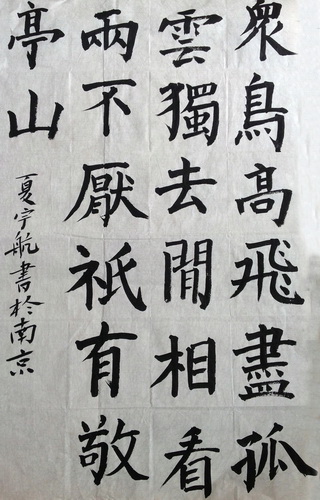 眾鳥高飛盡孤
雲獨去閒相看
兩不厭祇有敬
亭山
夏宇航書於南京